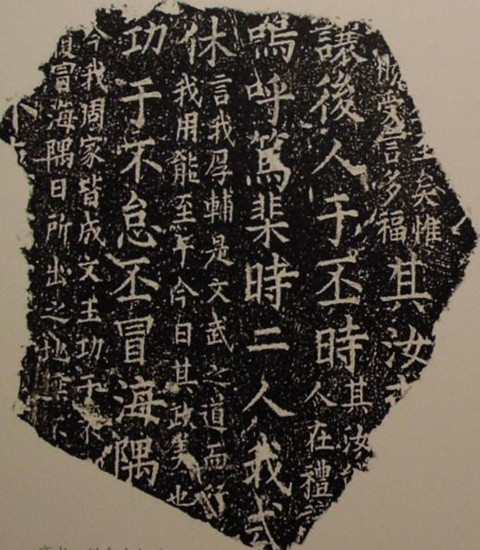 矣惟
受言多福
其汝
讓後人于丕時
其汝
人在禮
嗚呼篤棐時二人我式
休
言我厚輔是文武之道而行
我用能至于今日其政美也
功于不怠丕冒海隅
今我周家皆成文王功于不
冒海隅日所出之地無不